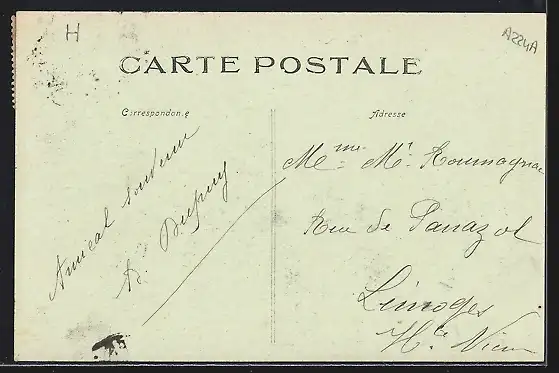 H
A224A
CARTE POSTALE
Correspondance
Adresse
Amical souvenir
A. Dupuy
Mme Mt Roumagnac
Rue de Panazol
Limoges
Hte Vienne